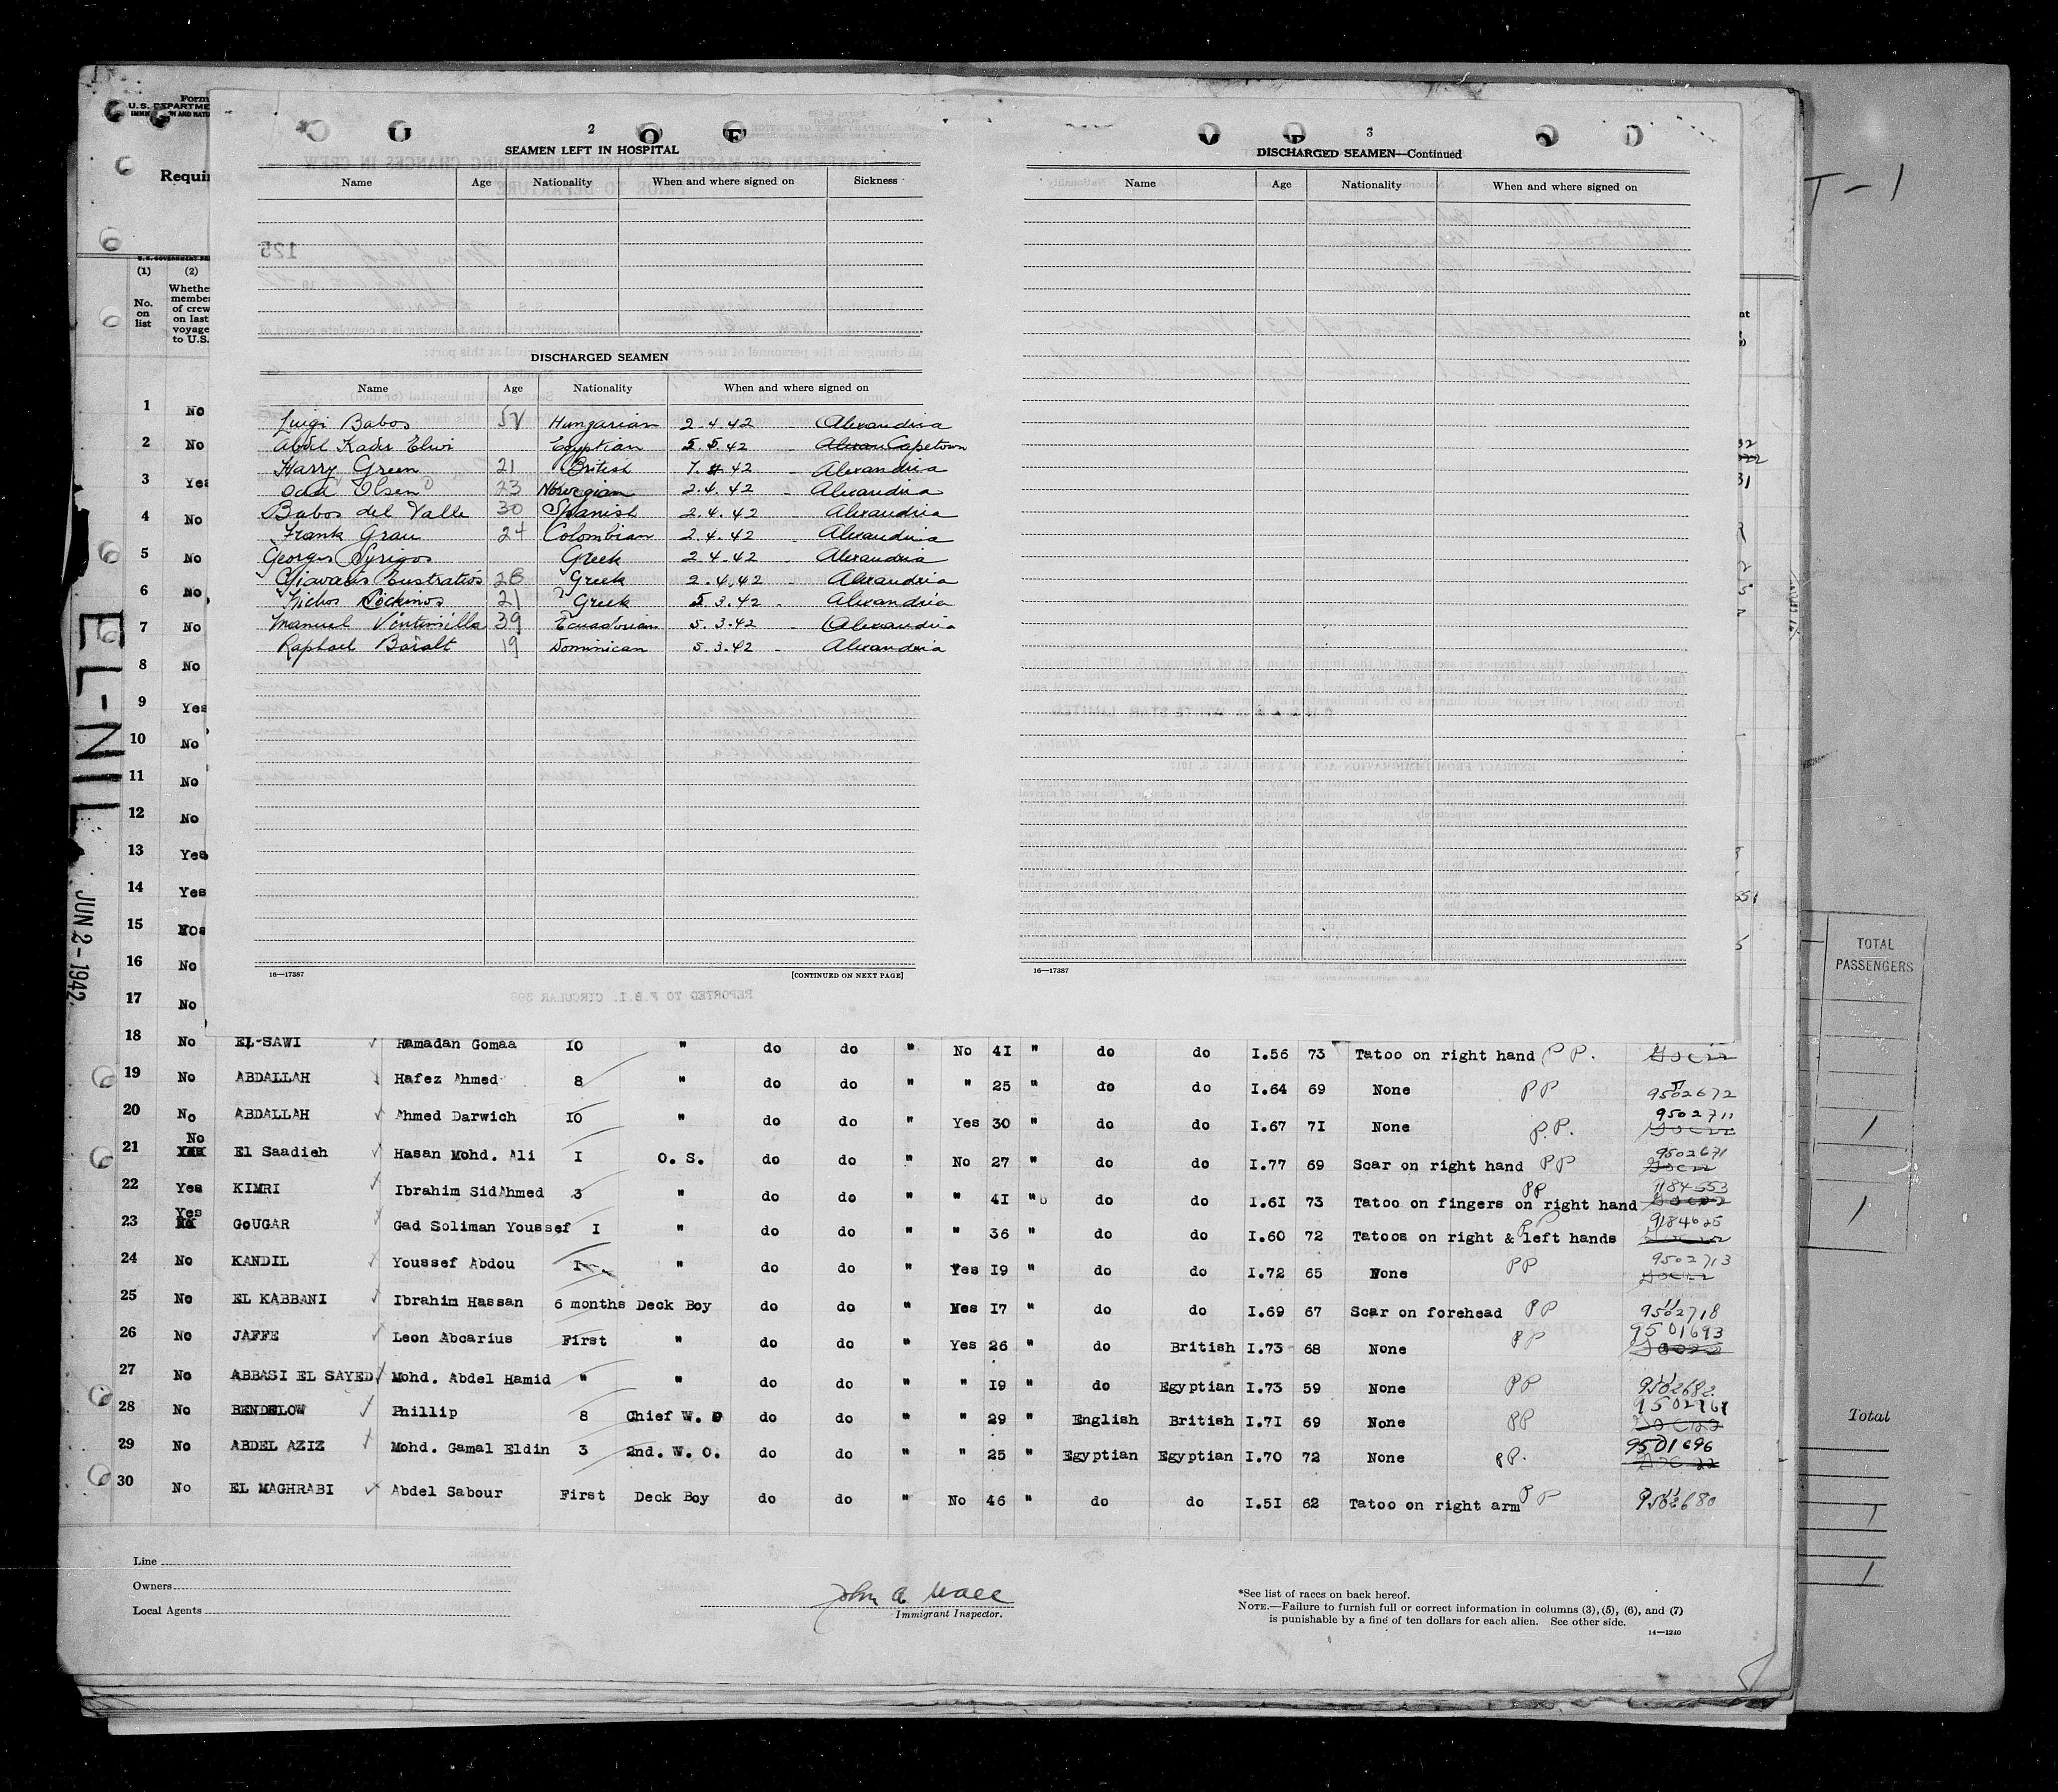 Form
U.S. DEPARTME
Requir
T-1
2
SEAMEN LEFT IN HOSPITAL
Name Age Nationality When and where signed on Sickness
DISCHARGED SEAMEN
Name Age Nationality When and where signed on
Luigi Babos 52 Hungarian 2.4.42 - Alexandria
Abdel Kader Elwi Egyptian 5.5.42 Capetown
Harry Green 21 British 7. 42 - Alexandria
Odd Olsen 23 Norwegian 2.4.42 - Alexandria
Babos del Valle 30 Spanish 2.4.42 - Alexandria
Frank Grau 24 Colombian 2.4.42 - Alexandria
Georgis Syrigos Greek 2.4.42 - Alexandria
Eustratios 28 Greek 2.4.42 - Alexandria
21 Greek 5.3.42 - Alexandria
Manuel Vintimilla 39 Ecuadorian 5.3.42 - Alexandria
Raphael Baralt 19 Dominican 5.3.42 - Alexandria
16—17387 [CONTINUED ON NEXT PAGE]
3
DISCHARGED SEAMEN—Continued
Name Age Nationality When and where signed on
16—17387
(1) (2)
No. on list
Whethe
membe
of crew
on last
voyage
to U.S.
1 No
2 No
3 Yes
4 No
5 No
6 No
7 No
8 No
9 Yes
10 No
11 No
12 No
13 Yes
14 Yes
15
16 No
17 No
18 No EL-SAWI Ramadan Gomaa 10 " do do " No 41 " do do 1.56 73 Tatoo on right hand PP.
19 No ABDALLAH Hafez Ahmed 8 " do do " " 25 " do do 1.64 69 None PP 9502672
20 No ABDALLAH Ahmed Darwich 10 " do do " Yes 30 " do do 1.67 71 None P.P. 9502711
21 No El Saadieh Hasan Mohd. Ali 1 O. S. do do " No 27 " do do 1.77 69 Scar on right hand PP 9502671
22 Yes KIMRI Ibrahim SidAhmed 3 " do do " " 41 " do do 1.61 73 Tatoo on fingers on right hand PP 9184553
23 Yes GOUGAR Gad Soliman Youssef 1 " do do " " 36 " do do 1.60 72 Tatoos on right & left hands PP 9184625
24 No KANDIL Youssef Abdou 1 " do do " Yes 19 " do do 1.72 65 None PP 9502713
25 No EL KABBANI Ibrahim Hassan 6 months Deck Boy do do " Yes 17 " do do 1.69 67 Scar on forehead PP 9502718
26 No JAFFE Leon Abcarius First " do do " Yes 26 " do British 1.73 68 None PP 9501693
27 No ABBASI EL SAYED Mohd. Abdel Hamid " " do do " " 19 " do Egyptian 1.73 59 None PP 9502682
28 No BENDELOW Phillip 8 Chief W. O do do " " 29 " English British 1.71 69 None PP
29 No ABDEL AZIZ Mohd. Gamal Eldin 3 2nd. W. O. do do " " 25 " Egyptian Egyptian 1.70 72 None PP. 9501696
30 No EL MAGHRABI Abdel Sabour First Deck Boy do do " No 46 " do do 1.51 62 Tatoo on right arm PP 9502680
EL-NIL
JUN 2-1942
Line
Owners
Local Agents
John A Wall
Immigrant Inspector.
*See list of races on back hereof.
NOTE.—Failure to furnish full or correct information in columns (3), (5), (6), and (7)
is punishable by a fine of ten dollars for each alien. See other side.
14—1240
TOTAL
PASSENGERS
Total